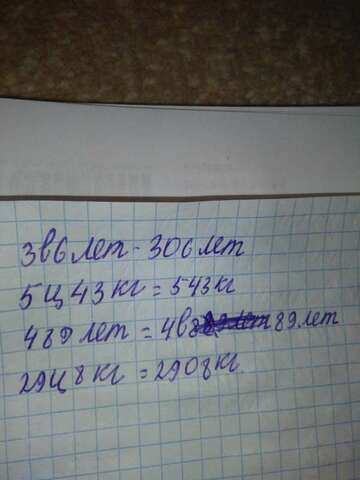 3в6лет - 306лет
5ц43кг = 543кг
489лет = 4в89лет
29ц8кг = 2908кг